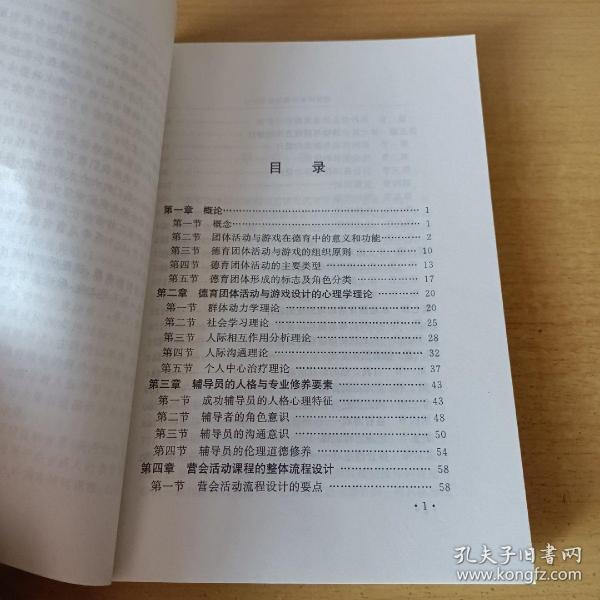 目 录
第一章 概论 1
第一节 概念 1
第二节 团体活动与游戏在德育中的意义和功能 2
第三节 德育团体活动与游戏的组织原则 10
第四节 德育团体活动的主要类型 13
第五节 德育团体形成的标志及角色分类 17
第二章 德育团体活动与游戏设计的心理学理论 20
第一节 群体动力学理论 20
第二节 社会学习理论 25
第三节 人际相互作用分析理论 28
第四节 人际沟通理论 32
第五节 个人中心治疗理论 37
第三章 辅导员的人格与专业修养要素 43
第一节 成功辅导员的人格心理特征 43
第二节 辅导者的角色意识 48
第三节 辅导员的沟通意识 50
第四节 辅导员的伦理道德修养 54
第四章 营会活动课程的整体流程设计 58
第一节 营会活动流程设计的要点 58
·1·
孔夫子旧书网
www.kongfz.com